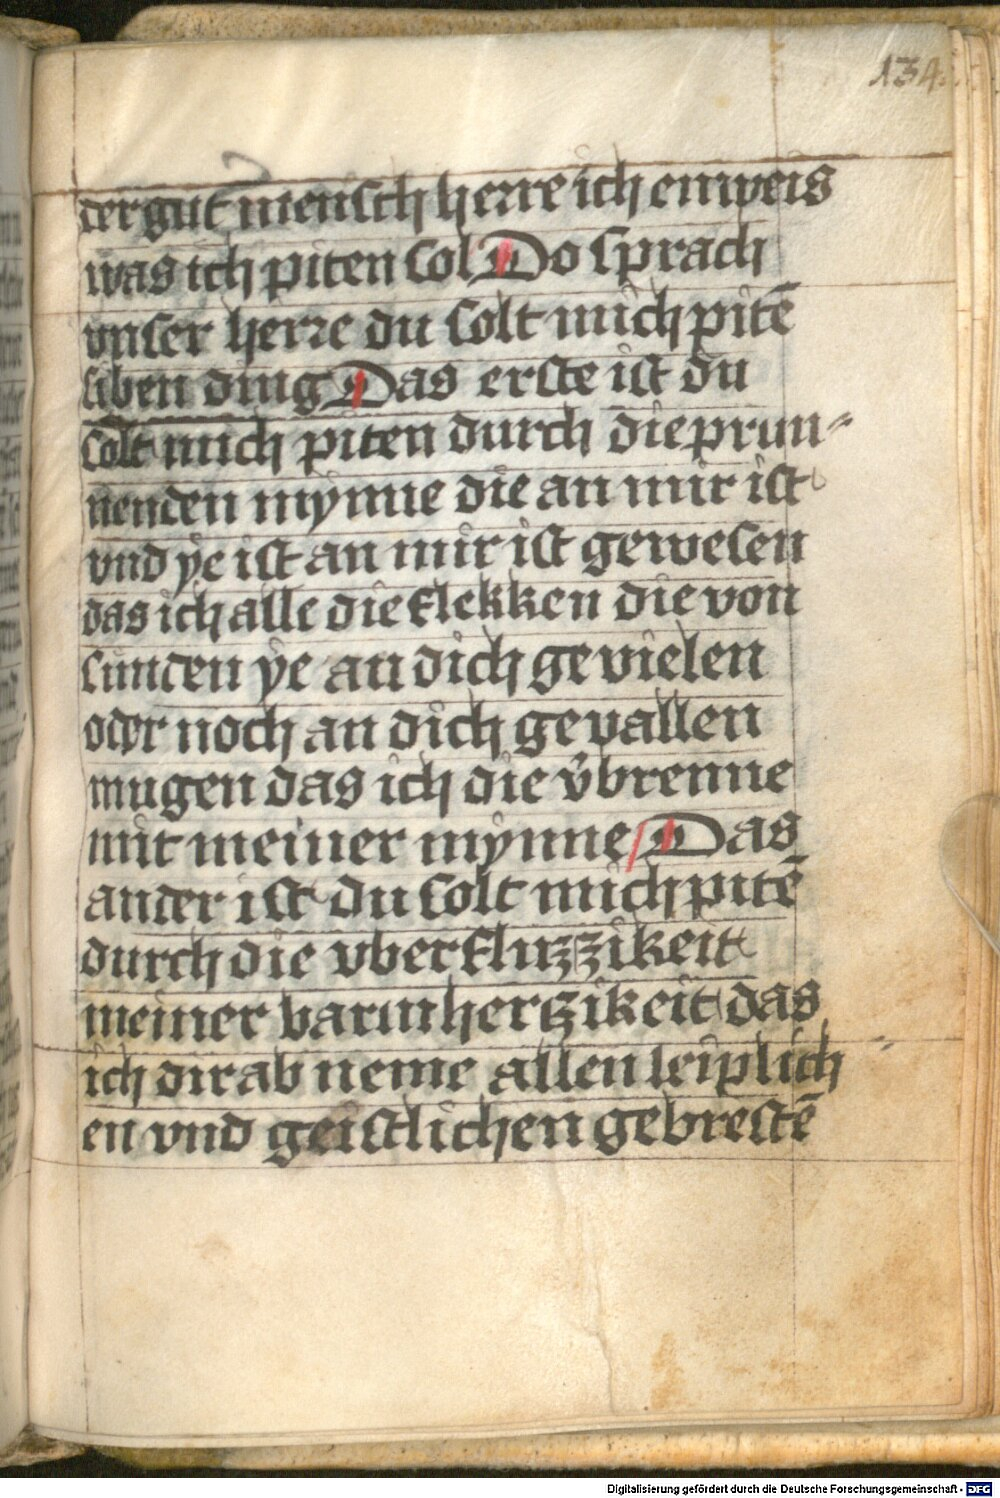 134
der gut mensch herre ich enweis
was ich piten sol Do sprach
vnser herre du solt mich pitē
siben ding Das erste ist du
solt mich piten durch die prun-
nenden mynne die an mir ist
vnd ye ist an mir ist gewesen
das ich alle die flekken die von
sunden ÿe an dich gevielen
oder noch an dich gevallen
mugen das ich die v̄brenne
mit meiner mynne / Das
ander ist du solt mich pitē
durch die vberfluzzikeit
meiner barmherzikeit das
ich dir ab neme allen leiplich
en vnd geistlichen gebrestē
Digitalisierung gefördert durch die Deutsche Forschungsgemeinschaft - DFG